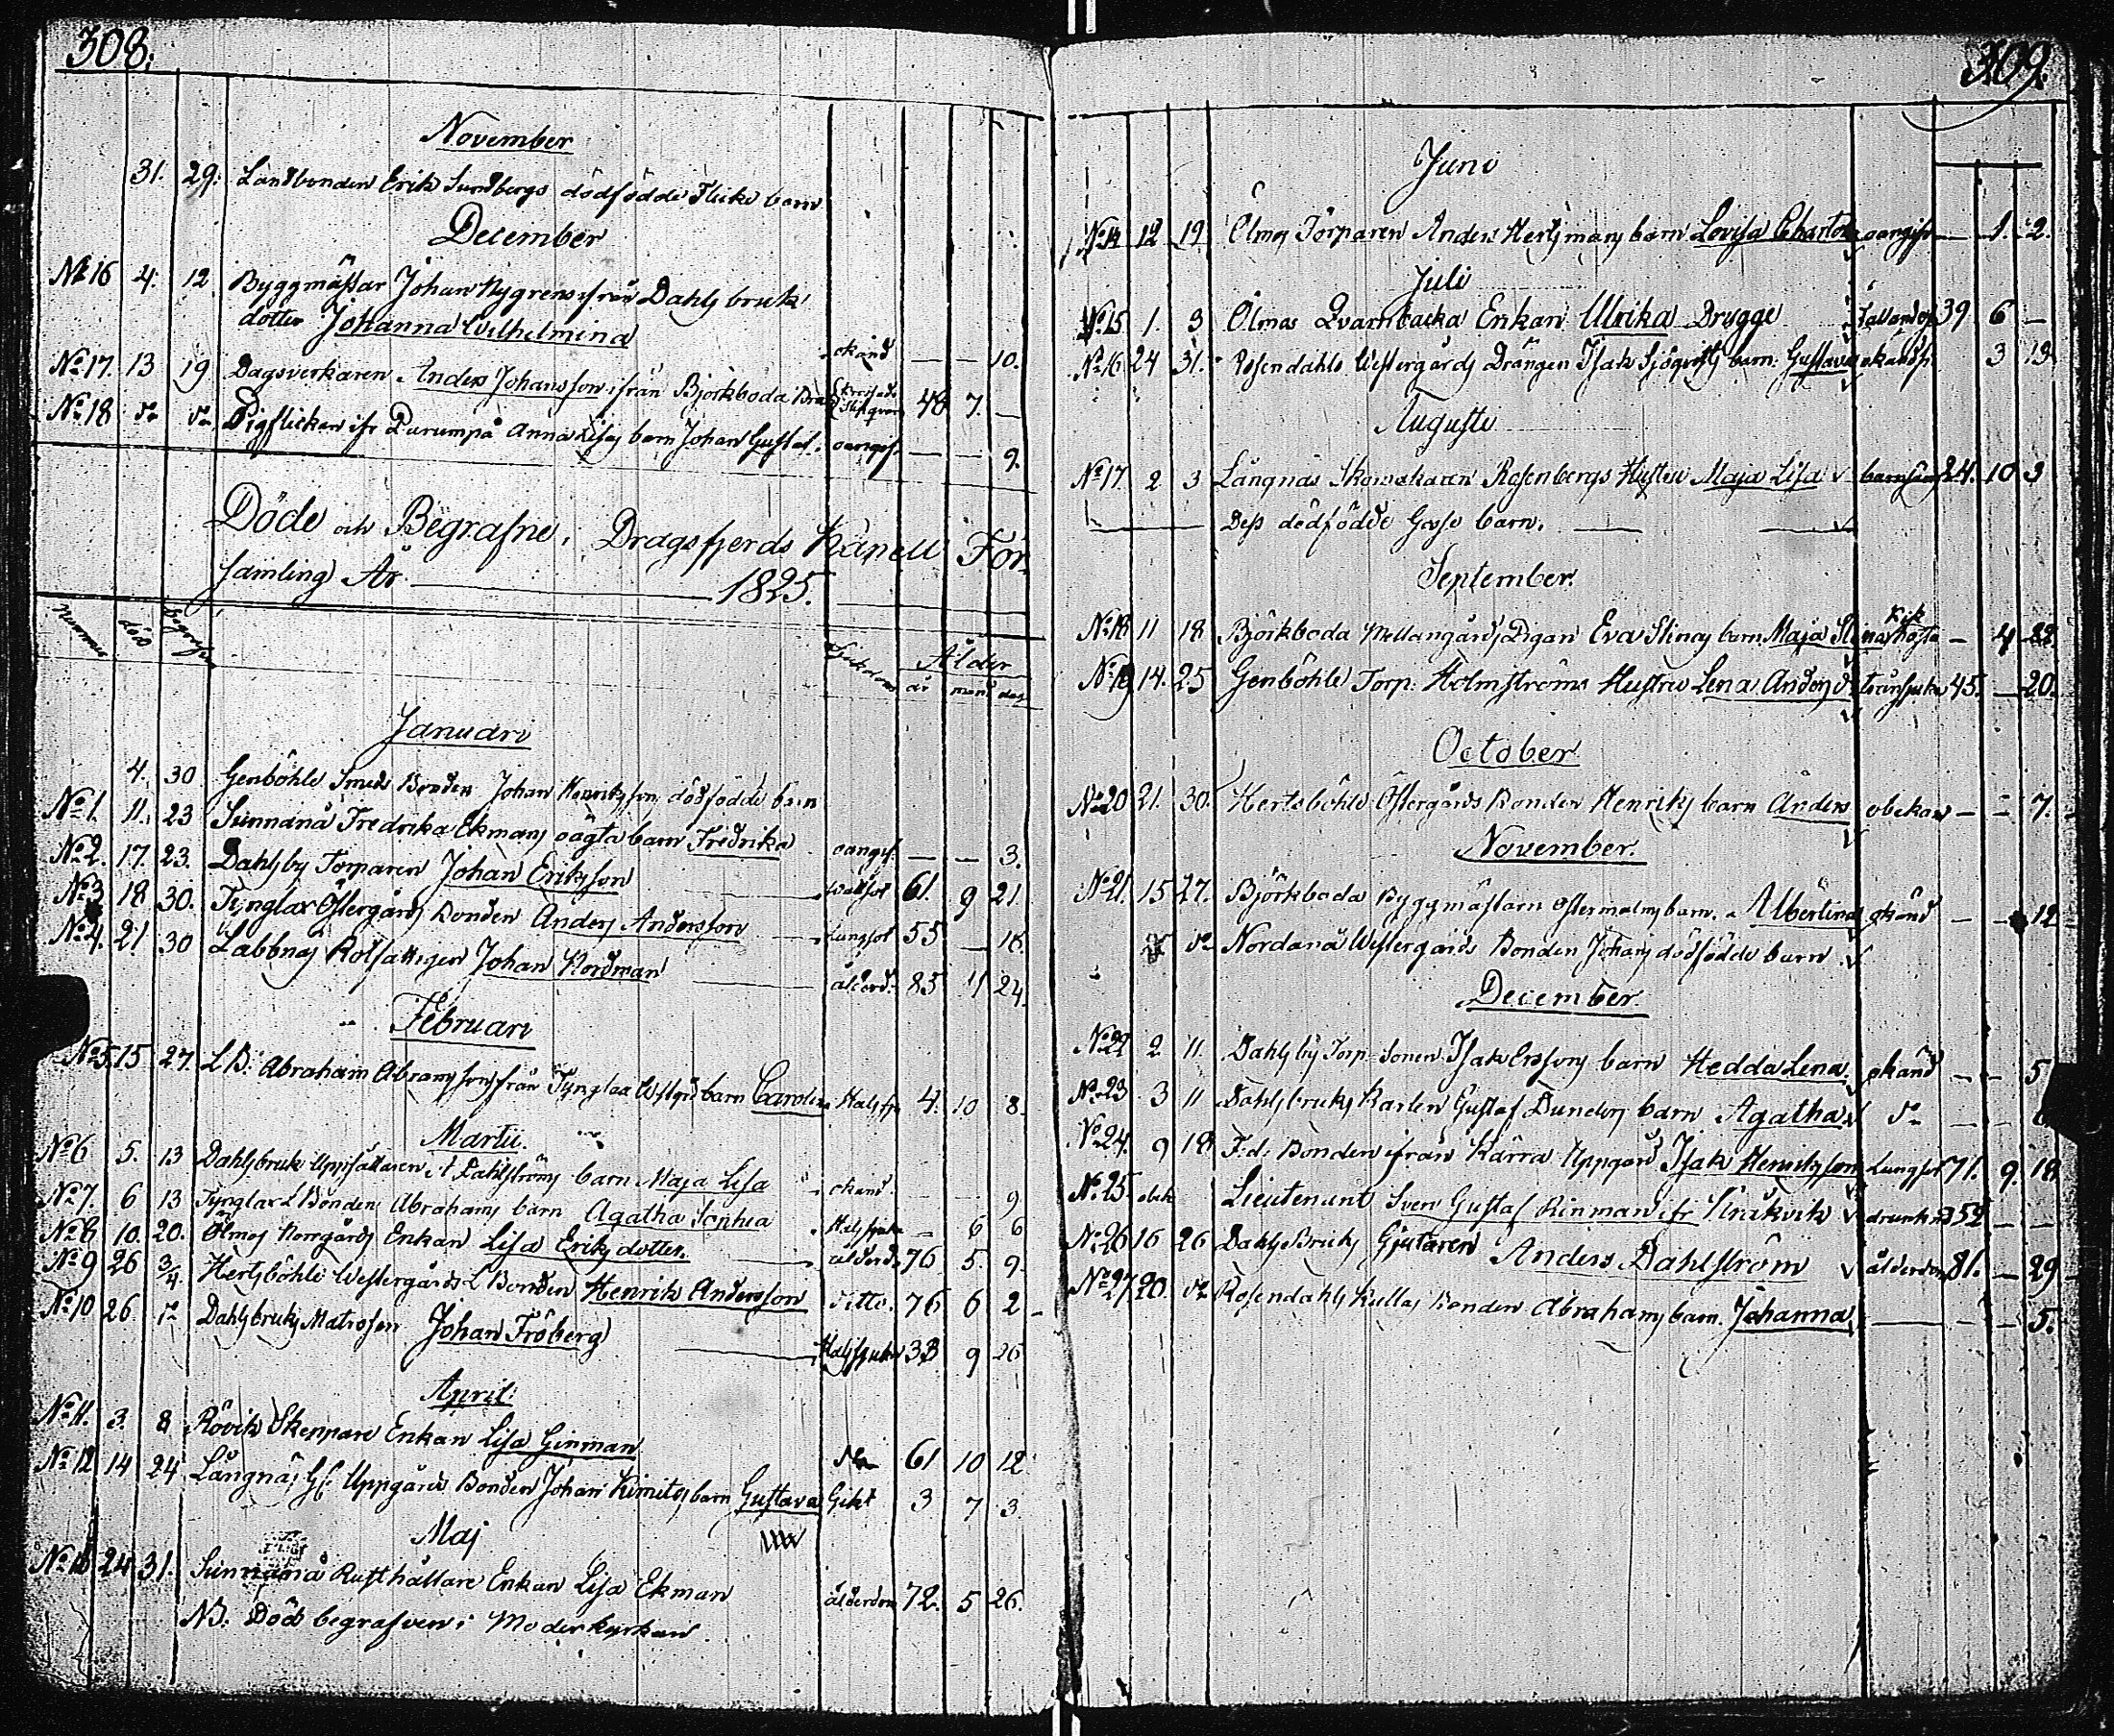 308.
November
31. 29. Landbonden Erik Sundbergs dödfödde Flicke barn
December
No 16 4. 12 Byggmästar Johan Nygrens ifrån Dahls bruk
dotter Johanna Wilhelmina okänd — — 10.
No 17. 13 19 Dagsverkaren Anders Johansson ifrån Björkboda 48 7. —
No 18 Pigflickan ifr Purumpå Anna Lisas barn Johan Gustaf. oangif. — — 9.
Döde och Begrafne i Dragsfjerds Kapell För
samling År 1825.
Nummer död begrafne Sjukdom Ålder
år mon. dag
Januari
4. 30 Genböhle Smeds Bonden Johan Henrikssons dödfödde barn
No 1. 11. 23 Sunnanå Fredrika Ekmans oägta barn Fredrika oangif. — — 3.
No 2. 17. 23. Dahlsby Torparen Johan Eriksson 61. 9 21.
No 3 18 30. Tynglax Östergårds Bonden Anders Andersson Lungsot 55 — 18.
No 4. 21 30 Labbnäs Rotfattigen Johan Nordman ålderd. 85 11 24.
Februari
No 5. 15 27. L B: Abraham Abramssons från Tynglax Westgrds barn Carolina Halssj. 4. 10 8.
Martii.
No 6 5. 13 Dahlsbruk Uppsättaren A Dahlströms barn Maja Lisa okänd — — 9
No 7. 6 13 Tynglax L Bonden Abrahams barn Agatha Sophia Halssjuka — 6 6
No 8 10. 20. Ölmos Norrgårds Enkan Lisa Eriksdotter. ålderd. 76 5. 9.
No 9 26 3/4. Hertsböhle Westergårds L Bonden Henrik Andersson Ditto. 76 6 2
No 10 26 Dahlsbruks Matrosen Johan Fröberg Halssjuka 33 9 26
April.
No 11. 3. 8 Rövik Skeppare Enkan Lisa Ginman 61 10 12
No 12 14 24 Långnäs Uppgårds Bonden Johan Kimitos barn Gustava Gikt 3 7 3.
Maj
24 31. Sunnanå Rusthållare Enkan Lisa Ekman ålderdom 72. 5 26.
NB. Död begrafven i Moderkyrkan
309.
Juni
No 14 12 19 Ölmos Torparen Anders Hertsmans barn Lovisa oangif. — 1. 2.
Juli
No 15 1. 3 Ölmos Qvarnbacka Enkan Ulrika Drygge 39 6 —
No 16 24 31. Rosendahls Westergårds Drängen Isak Sjöqvists barn Gustava 3 19
Augusti
No 17 2 3 Långnäs Skomakaren Rosenbergs Hustru Maja Lisa barnsäng 24. 10 3
Dess dödfödde Gosse barn.
September.
No 18 11 18 Björkboda Mellangårds Pigan Eva Stinas barn Maja Stina Kikhosta — 4 22
No 19 14. 25 Genböhle Torp. Holmströms Hustru Lena Anders d. 45. — 20.
October
No 20 21. 30. Hertsböhle Östergårds Bonden Henriks barn Anders obekan — — 7.
November.
No 21. 15 27. Björkboda Byggmästarn Östermalms barn Albertina okänd — — 12
Nordanå Westergårds Bonden Johans dödfödde barn
December
No 22 2 11. Dahlsby Torp. Sonen Isak Erssons barn Hedda Lena okänd — — 5
No 23 3 11 Dahlsbruks Karlen Gustaf Dunders barn Agatha
No 24. 9 18 F.d. Bonden ifrån Kärra Uppgård Isak Henriksson Lungsot 71. 9. 18.
No 25. obek Lieutenant Sven Gustaf Rinman ifr Kråkvik drunkn. 52 — —
No 26 16 26 Dahls Bruks Gjutaren Anders Dahlström ålderdom 81. — 29
No 27. 20. Rosendahls Kullas Bonden Abrahams barn Johanna — — 5.